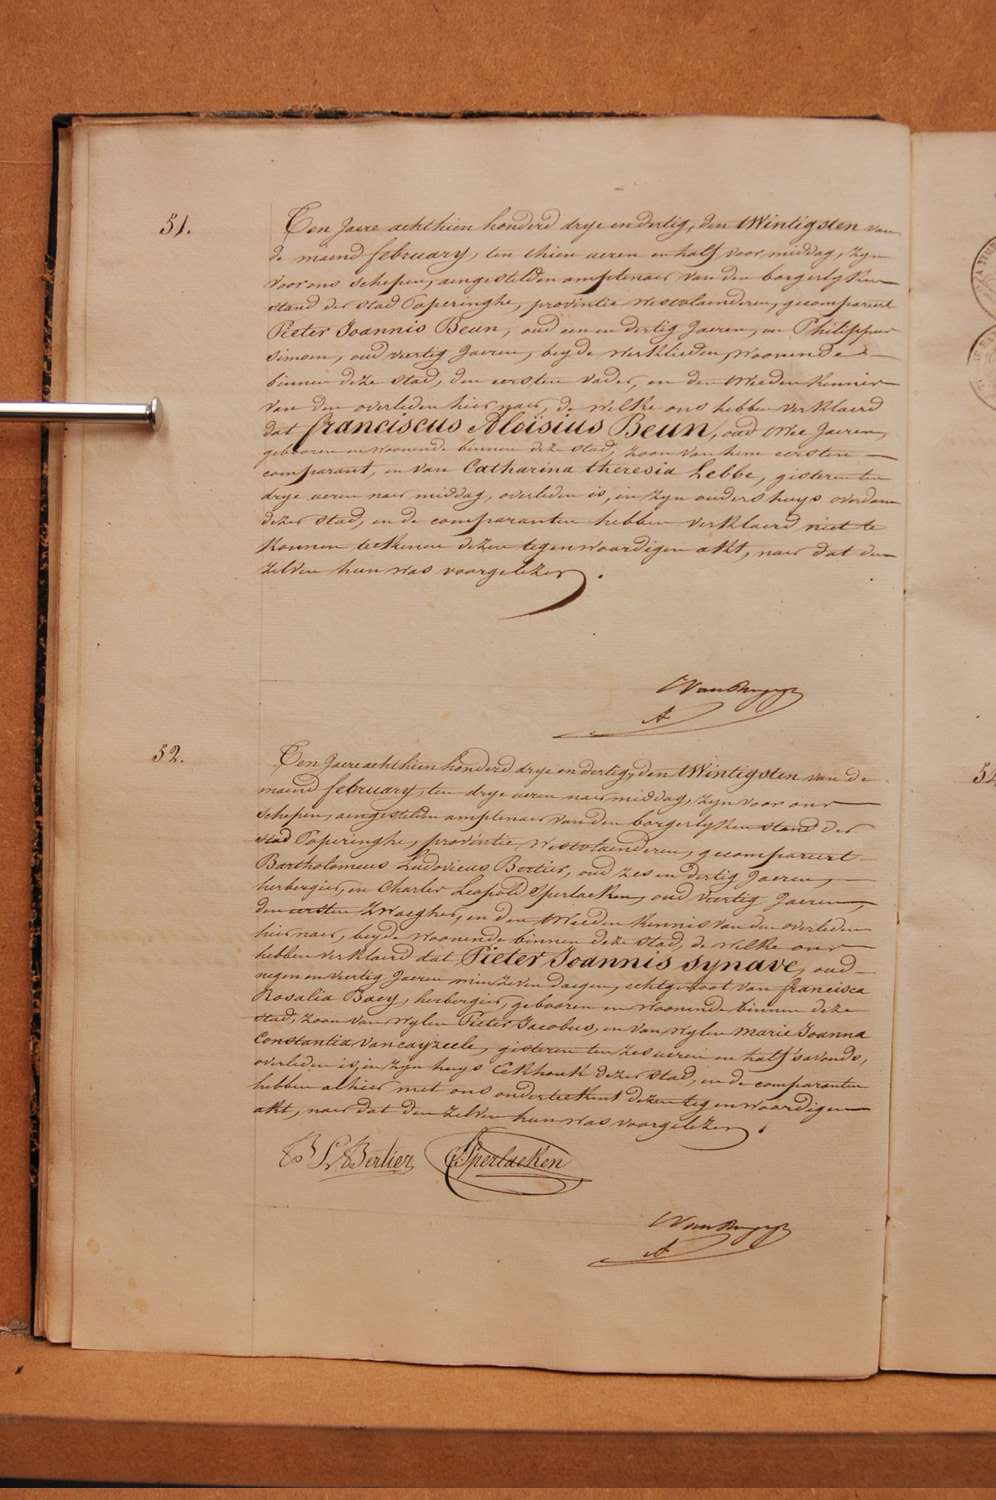 51.
Ten Jaere achthien honderd drye en dertig, den twintigsten van
de maend february, ten thien ueren en half voor middag, zyn
voor ons schepen, aengestelden amptenaer van den borgerlyken
stand der stad Poperinghe, provintie Westvlaenderen, gecompareert
Pieter Joannis Beun, oud een en dertig Jaeren, en Philippus
Simoen, oud viertig Jaeren, beyde werklieden, woonende
binnen deze stad, den eersten vader, en den tweeden kennis
van den overleden hier naer, de welke ons hebben verklaerd
dat franciscus Aloïsius Beun, oud twee Jaeren,
gebooren en woonende binnen deze stad, zoon van hem eersten
comparant, en van Catharina theresia Lebbe, gisteren ten
drye ueren naer middag, overleden is, in zyn ouders huys overdam
dezer stad, en de comparanten hebben verklaerd niet te
konnen teekenen dezen tegenwoordigen akt, naer dat den
zelven hun was voorgelezen.
52.
Ten Jaere achthien honderd drye en dertig, den twintigsten van de
maend february, ten drye ueren naer middag, zyn voor ons
schepen, aengestelden amptenaer van den borgerlyken stand der
stad Poperinghe, provintie Westvlaenderen, gecompareert
Bartholomeus Ludovicus Bertier, oud zes en dertig Jaeren,
herbergier, en Charles Leopold Sperlaeken, oud viertig Jaeren,
den eersten zwaegher, en den tweeden kennis van den overleden
hier naer, beyde woonende binnen deze stad, de welke ons
hebben verklaerd dat Pieter Joannis Synave, oud
negen en viertig Jaeren min zeven daegen, echtgenoot van francisca
Rosalia Baey, herbergier, gebooren en woonende binnen deze
stad, zoon van wylen Pieter Jacobus, en van wylen Marie Joanna
Constantia Vancayzeele, gisteren ten zes ueren en half s'avonds,
overleden is, in zyn huys Eekhouk dezer stad, en de comparanten
hebben alhier met ons onderteekent dezen tegenwoordigen
akt, naer dat den zelven hun was voorgelezen.
B L Bertier C Sperlaeken